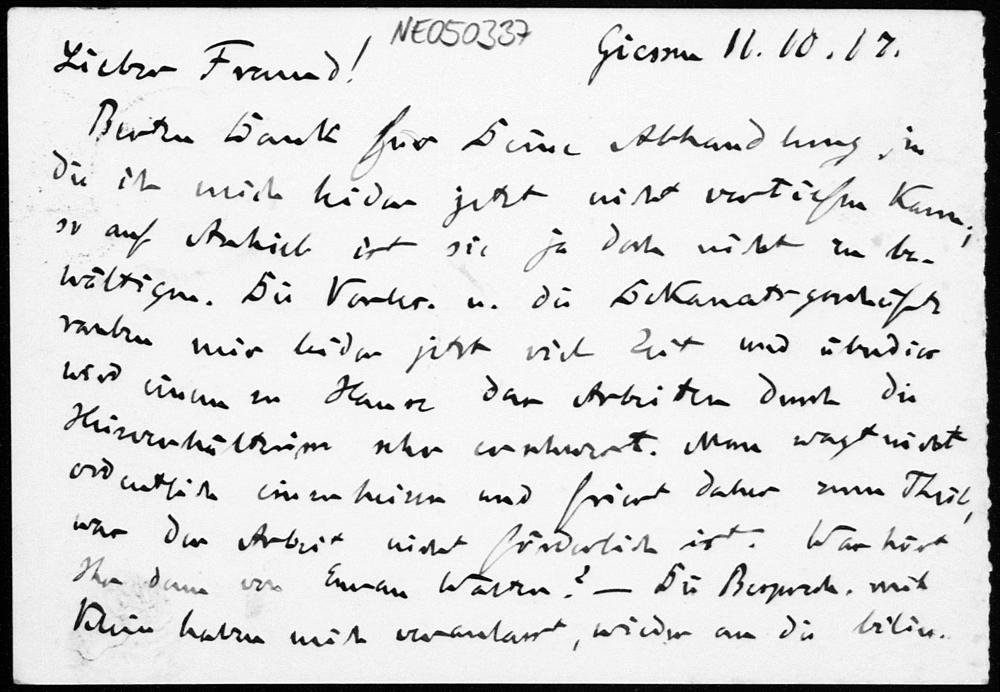 NE050337
Giessen 11. 10. 17.
Lieber Freund!
Besten Dank für Deine Abhandlung, in
die ich mich leider jetzt nicht vertiefen kann;
so auf Anhieb ist sie ja doch nicht zu be-
wältigen. Die Vorles. u. die Dekanatsgeschäfte
rauben mir leider jetzt viel Zeit und überdies
wird einem zu Hause das Arbeiten durch die
Heizverhältnisse sehr erschwert. Man wagt nicht
ordentlich einzuheizen und friert daher zum Theil,
was der Arbeit nicht förderlich ist. Was hört
Ihr denn von Euren? — Die Besprech. mit
Klein haben mich veranlasst, wieder an die bilin.